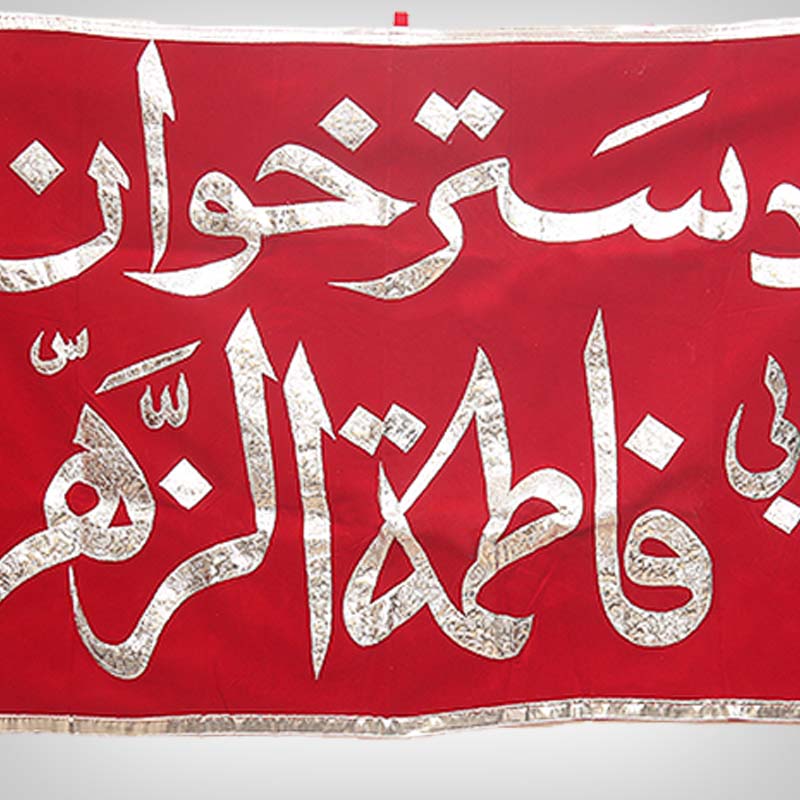 دسترخوان
بی فاطمة الزهر